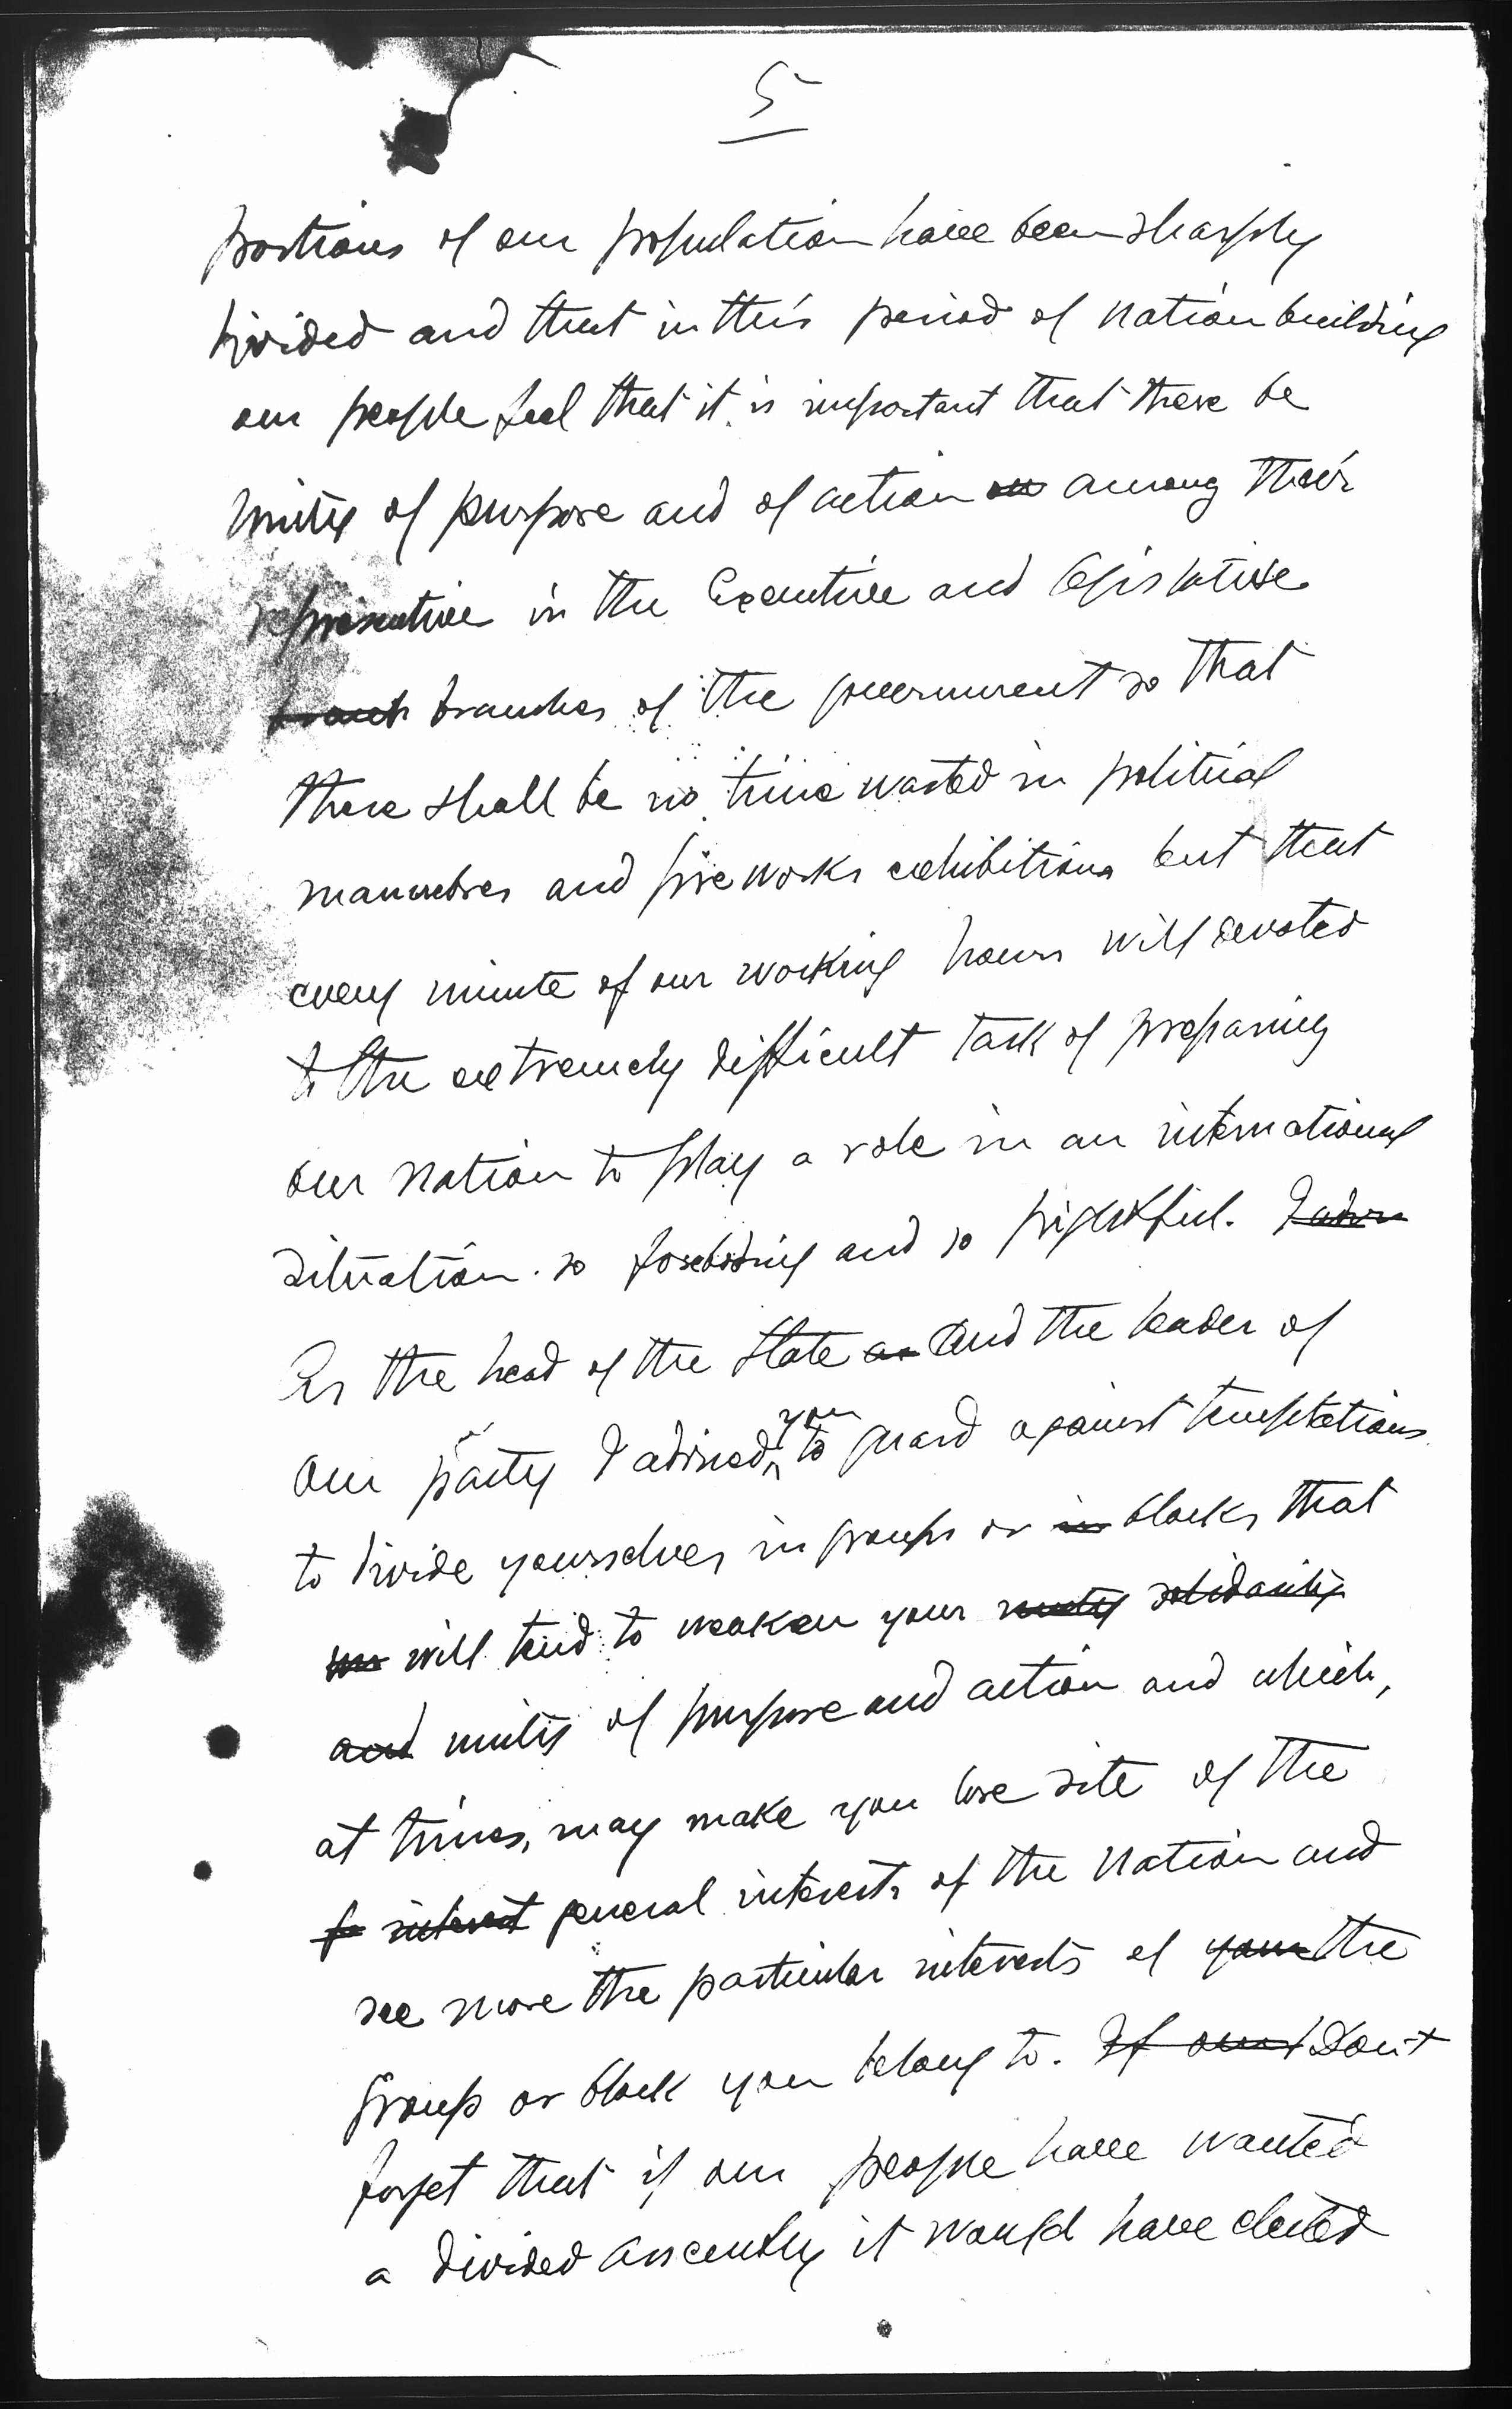 5
portions of our population have been sharply
divided and that in this period of nation building
our people feel that it is important that there be
unity of purpose and of action on among their
representive in the Executive and legislative
branch branches of the government so that
there shall be no time wasted in political
manuebres and fire works exhibitions but that
every minute of our working hours will devoted
to the extremely difficult task of preparing
our nation to play a role in an international
situation so foreboding and so frightful. I advise
As the head of the State as and the leader of
our party I adviced you to guard against temptations
to divide yourselves in groups or in blocks that
will tend to weaken your unity solidarity
and unity of purpose and action and which,
at times, may make you lose site of the
interest general interests of the nation and
see more the particular interests of your the
group or block you belong to. If our Don't
forget that if our people have wanted
a divided Assembly it would have elected